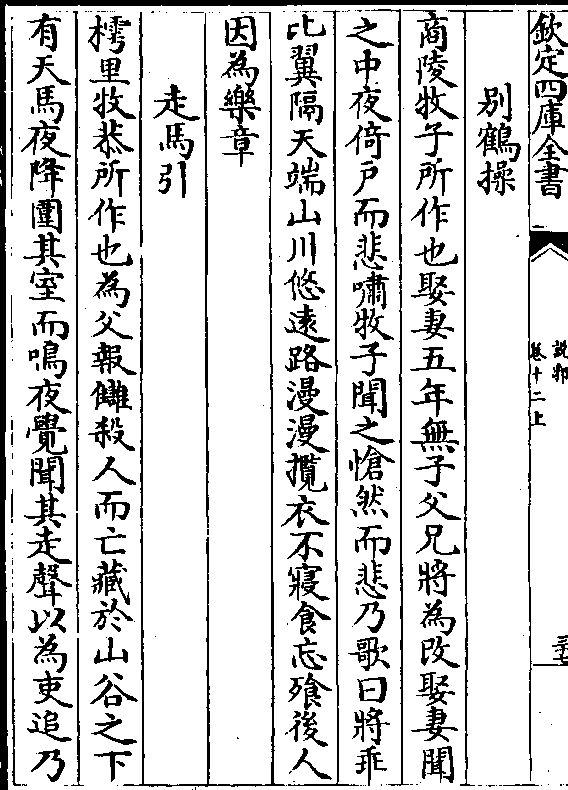 欽定四庫全書
說郛
卷十二上
三七
別鶴操
商陵牧子所作也娶妻五年無子父兄將為改娶妻聞
之中夜倚戶而悲嘯牧子聞之愴然而悲乃歌曰將乖
比翼隔天端山川悠遠路漫漫攬衣不寢食忘飱後人
因為樂章
走馬引
樗里牧恭所作也為父報讎殺人而亡藏於山谷之下
有天馬夜降圍其室而鳴夜覺聞其走聲以為吏追乃